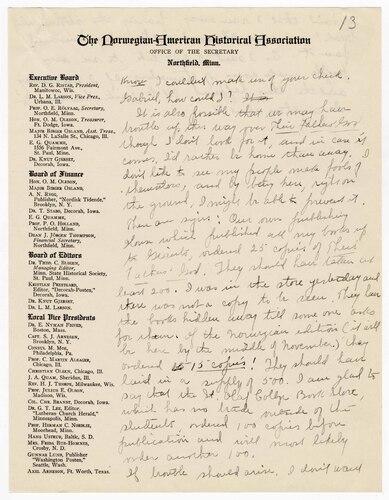 13
The Norwegian-American Historical Association
OFFICE OF THE SECRETARY
Northfield, Minn.
Executive Board
REV. D. G. RISTAD, President,
Manitowoc, Wis.
DR. L. M. LARSON, Vice Pres.,
Urbana, Ill.
PROF. O. E. RÖLVAAG, Secretary,
Northfield, Minn.
HON. O. M. OLESON, Treasurer,
Ft. Dodge, Iowa
MAJOR BIRGER OSLAND, Asst. Treas.,
134 N. LaSalle St., Chicago, Ill.
E. G. QUAMME,
1596 Fairmont Ave.,
St. Paul, Minn.
DR. KNUT GJERSET,
Decorah, Iowa
Board of Finance
HON. O. M. OLESON,
MAJOR BIRGER OSLAND,
A. N. RYGG,
Publisher, "Nordisk Tidende,"
Brooklyn, N. Y.
DR. T. STABO, Decorah, Iowa.
E. G. QUAMME,
St. Paul, Minn.
PROF. P. O. HOLLAND,
Northfield, Minn.
DEAN J. JÖRGEN THOMPSON,
Financial Secretary,
Northfield, Minn.
Board of Editors
DR. THEO. C. BLEGEN,
Managing Editor,
Minn. State Historical Society,
St. Paul, Minn.
KRISTIAN PRESTGARD,
Editor, "Decorah-Posten,"
Decorah, Iowa.
DR. KNUT GJERSET,
DR. L. M. LARSON,
Local Vice Presidents
DR. E. NYMAN FIGVED,
Boston, Mass.
CAPT. S. J. ARNESEN,
Brooklyn, N. Y.
CONSUL M. MOE,
Philadelphia, Pa.
PROF. C. MARTIN ALSAGER,
Chicago, Ill.
CHRISTIAN OLSEN, Chicago, Ill.
J. A. QUAM, Sheridan, Ill.
REV. H. J. THORPE, Milwaukee, Wis.
PROF. JULIUS E. OLSON,
Madison, Wis.
COL. CHR. BRANDT, Decorah, Iowa.
DR. G. T. LEE, Editor
"Lutheran Church Herald,"
Minneapolis, Minn.
PROF. HERMAN C. NORDLIE,
Moorhead, Minn.
HANS USTRUD, Baltic, S. D.
MRS. FRIDA BUE-HOMNES,
Crosby, N. D.
GUNNAR LUND, Publisher
"Washington Posten,"
Seattle, Wash.
AXEL ARNESON, Ft. Worth, Texas.
know I could but make use of your check.
Gabriel, how could I?
It is also possible that we may have
trouble up this way over
though I don't look for it, and in case it
comes, I'd rather be home than away. I
don't like to see my people make fools of
themselves, and by being here, right on
the ground, I might be able to prevent it.
Then again: Our own publishing
down which published all my books up
to Giants, ordered 25 copies of Peder
Victorious. They should have taken at
least 200. I was in the store yesterday and
there was not a copy to be seen. They have
the books hidden away till some one asks
for them. Of the Norwegian edition (it will
be here by the middle of November) they
ordered 15 copies! They should have
laid in a supply of 500. I am glad to
say that the St. Olaf College Book Store
which has no trade outside of the
students, ordered 100 copies before
publication and will most likely
order another 100.
If trouble should arise, I don't want